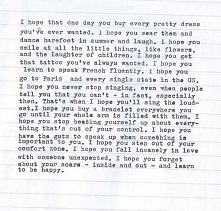 I hope that one day you buy every pretty dress
you've ever wanted. I hope you wear them and
dance barefoot in summer and laugh. I hope you
smile at all the little things, like flowers,
and the laughter of children. I hope you get
that tattoo you've always wanted. I hope you
learn to speak French fluently. I hope you
go to Paris and every single state in the US.
I hope you never stop singing, even when people
tell you that you can't - in fact, especially
then. That's when I hope you'll sing the loud-
est.I hope you buy a bracelet everywhere you
go until your whole arm is filled with them. I
hope you stop beating yourself up about every-
thing that's out of your control. I hope you
have the guts to speak up when something is
important to you. I hope you step out of your
comfort zone. I hope you fall insanely in love
with someone unexpected. I hope you forget
about your scars - inside and out - and learn
to be happy.